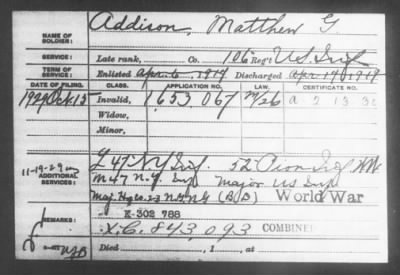 NAME OF SOLDIER: Addison, Matthew G.
SERVICE: Late rank, Co. 106 Reg't U.S. Inf
TERM OF SERVICE: Enlisted Apr. 6, 1919 Discharged Apr. 14, 1919
DATE OF FILING. CLASS. APPLICATION NO. LAW. CERTIFICATE NO.
1929 Oct 15 Invalid, 1653067
Widow,
Minor,
11-19-29
ADDITIONAL SERVICES: L 47 NY Inf. 52 Pion Inf WW
M 47 N.Y. Inf Major US Inf
World War
K-302 788
REMARKS: XC. 843,093 COMBINED
Died , 1 , at